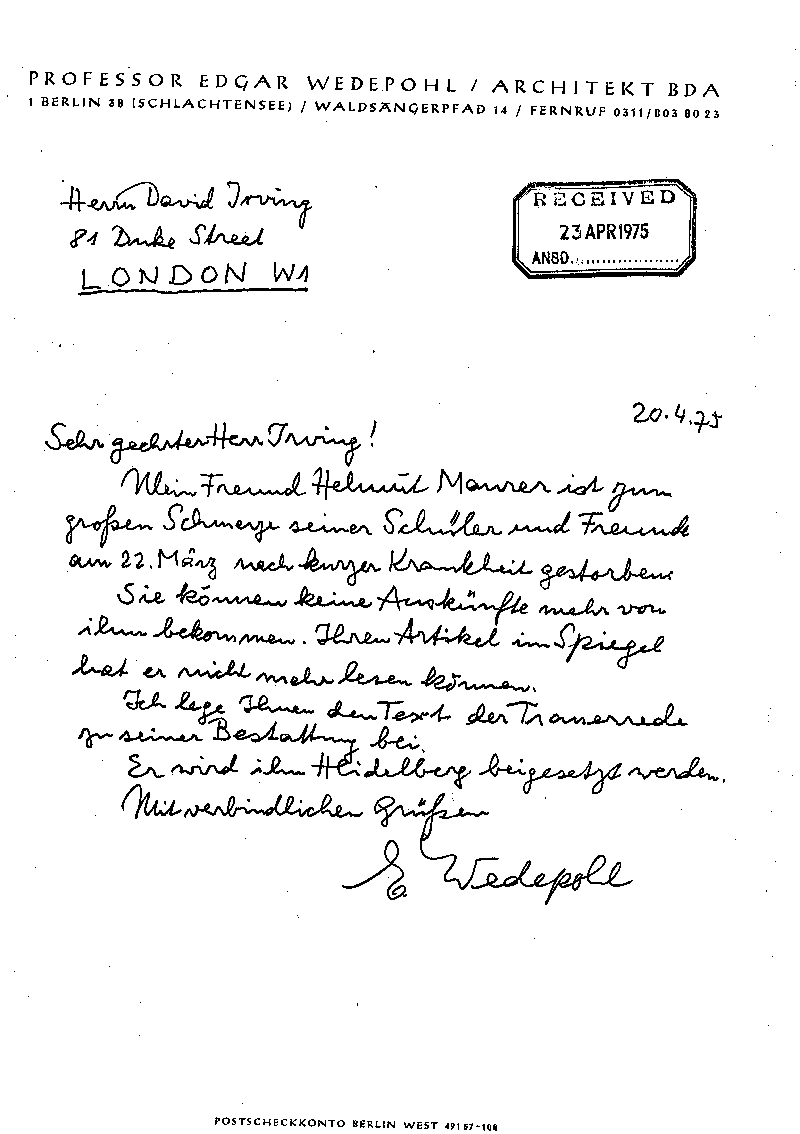 PROFESSOR EDGAR WEDEPOHL / ARCHITEKT BDA
1 BERLIN 38 (SCHLACHTENSEE) / WALDSÄNGERPFAD 14 / FERNRUF 0311/803 80 23
Herrn David Irving
81 Duke Street
LONDON W1
RECEIVED
23 APR 1975
ANSD..................
20.4.75
Sehr geehrter Herr Irving!
Mein Freund Helmut Maurer ist zum
großen Schmerze seiner Schüler und Freunde
am 22. März nach kurzer Krankheit gestorben.
Sie können keine Auskünfte mehr von
ihm bekommen. Ihren Artikel im Spiegel
hat er nicht mehr lesen können.
Ich lege Ihnen den Text der Trauerrede
zu seiner Bestattung bei.
Er wird in Heidelberg beigesetzt werden.
Mit verbindlichen Grüßen
E Wedepohl
POSTSCHECKKONTO BERLIN WEST 491 67-108